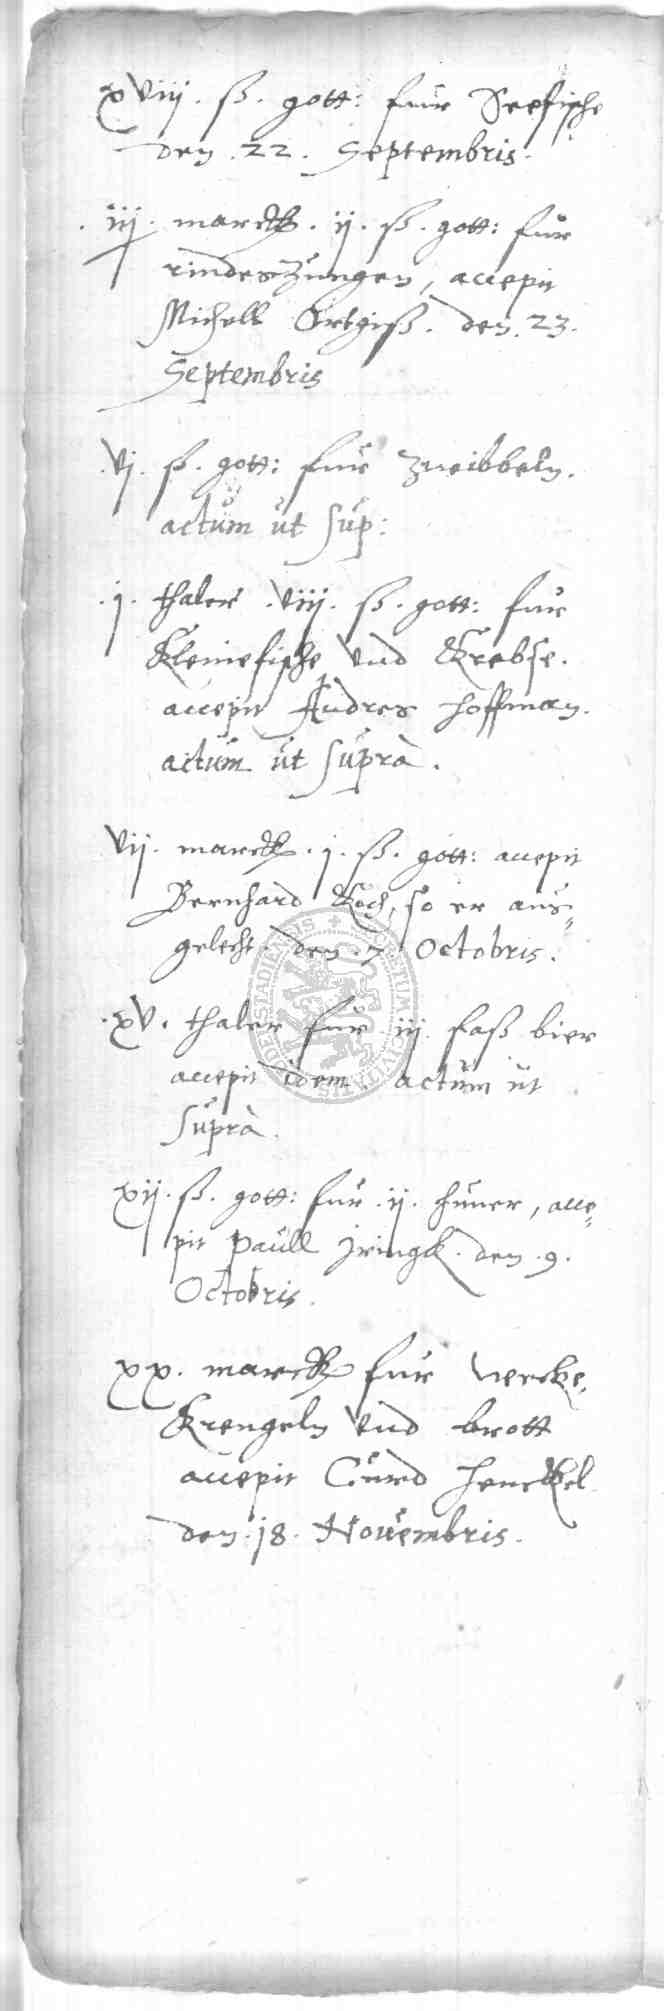 xviij. ß. gott: fur Seefische
den .22. Septembris.
iij. marck. ij. ß. gott: fur
rinderzungen, accepit
Michell Ortgiß. den. 23.
Septembris
vj. ß. gott: fur Zweibbeln.
actum ut sup:
j. thaler .viij. ß. gott: fur
Kleinefische vnd Krebse.
accepit Andres Hoffman.
actum ut suprà.
vij. marck. j. ß. gott: accepit
Bernhard Koch, so er aus=
gelecht. den .7. Octobris.
xv. thaler fur iij faß bier
accepit idem. actum ut
suprà.
xij. ß. gott: fur .ij. huner, acce=
pit Paull Jringk. den .9.
Octobris.
xx. marck fur wecke,
Krengeln vnd brott
accepit Curd Henckel
den .18. Novembris.